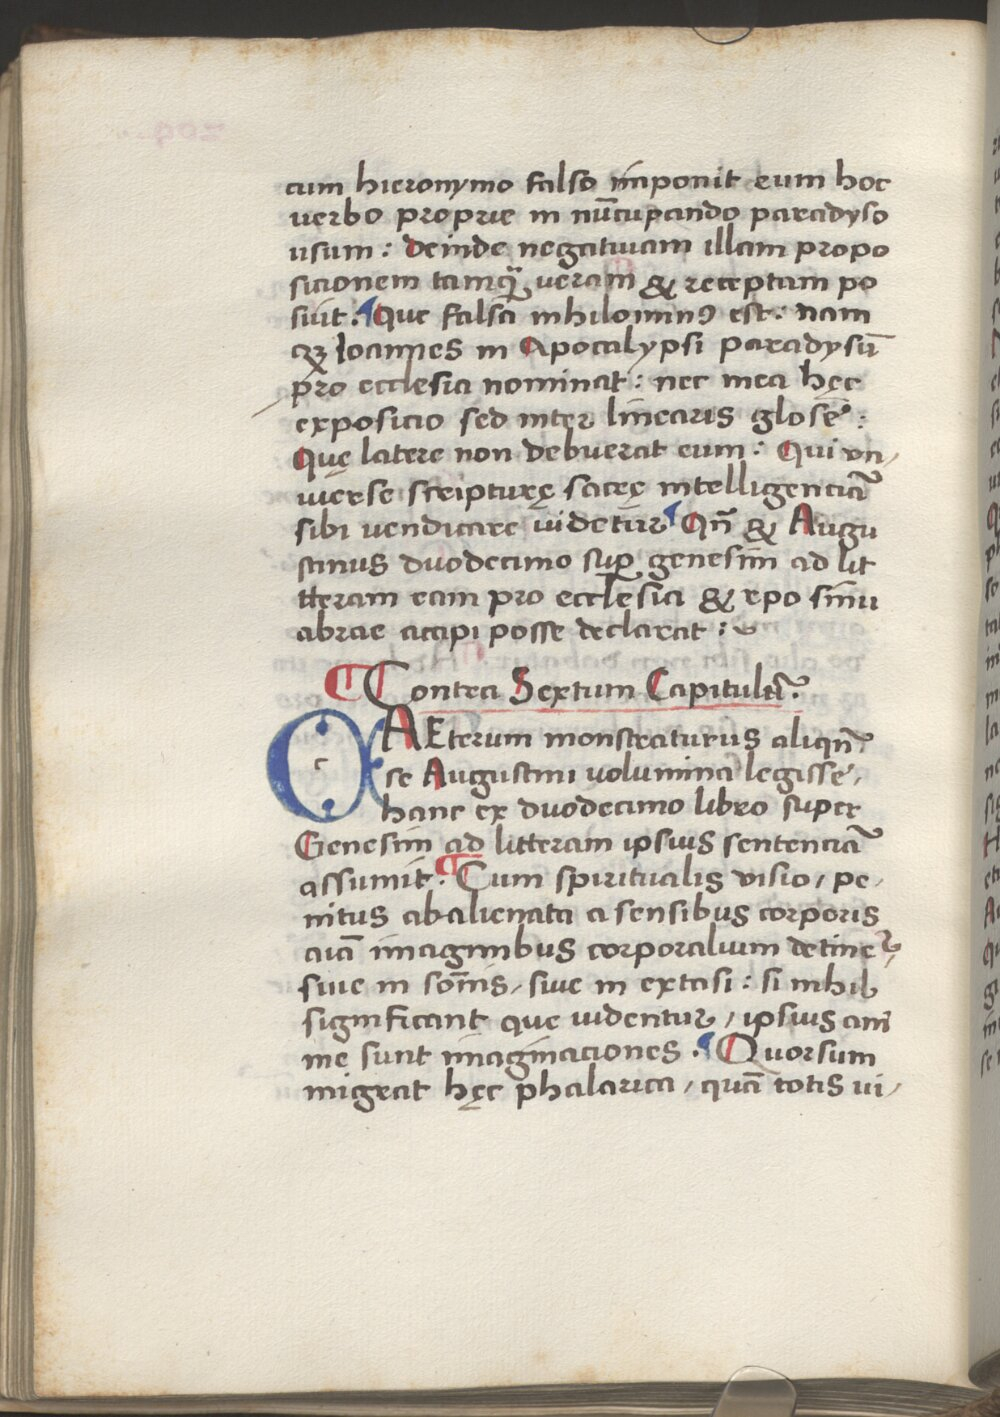 cum hieronymo falso imponit eum hoc
uerbo proprie in nūcupando paradyso
usum : deinde negatiuam illam propo
sicionem tamq̃ ueram & receptam po
suit . Que falsa nihilominꝰ est : nam
Ioannes in Apocalypsi paradysū
pro ecclesia nominat : nec mea hęc
exposicio sed inter linearis glose :
Quę latere non debuerat eum : Qui vn,
iuerse scripturę sacrę intelligenciā
sibi uendicare uidetur Qn̄ & Augu
stinus duodecimo suꝑ genesim ad lit
tteram eam pro ecclesia & xpo sinu
abrae accipi posse declarat :
Contra Sextum Capitulū .
c AEterum monstraturus aliqn̄
se Augustini uolumina legisse,
hanc ex duodecimo libro super
Genesim ad litteram ipsius sentenciā
assumit . Cum spiritualis visio, pe,
nitus abalienata a sensibus corporis
aiā imaginibus corporalium detine,
siue in som̄is, siue in extasi : si nihil
significant que uidentur, ipsius ani
me sunt imaginaciones . Quorsum
migrat hęc phalarica, quā totis ui,